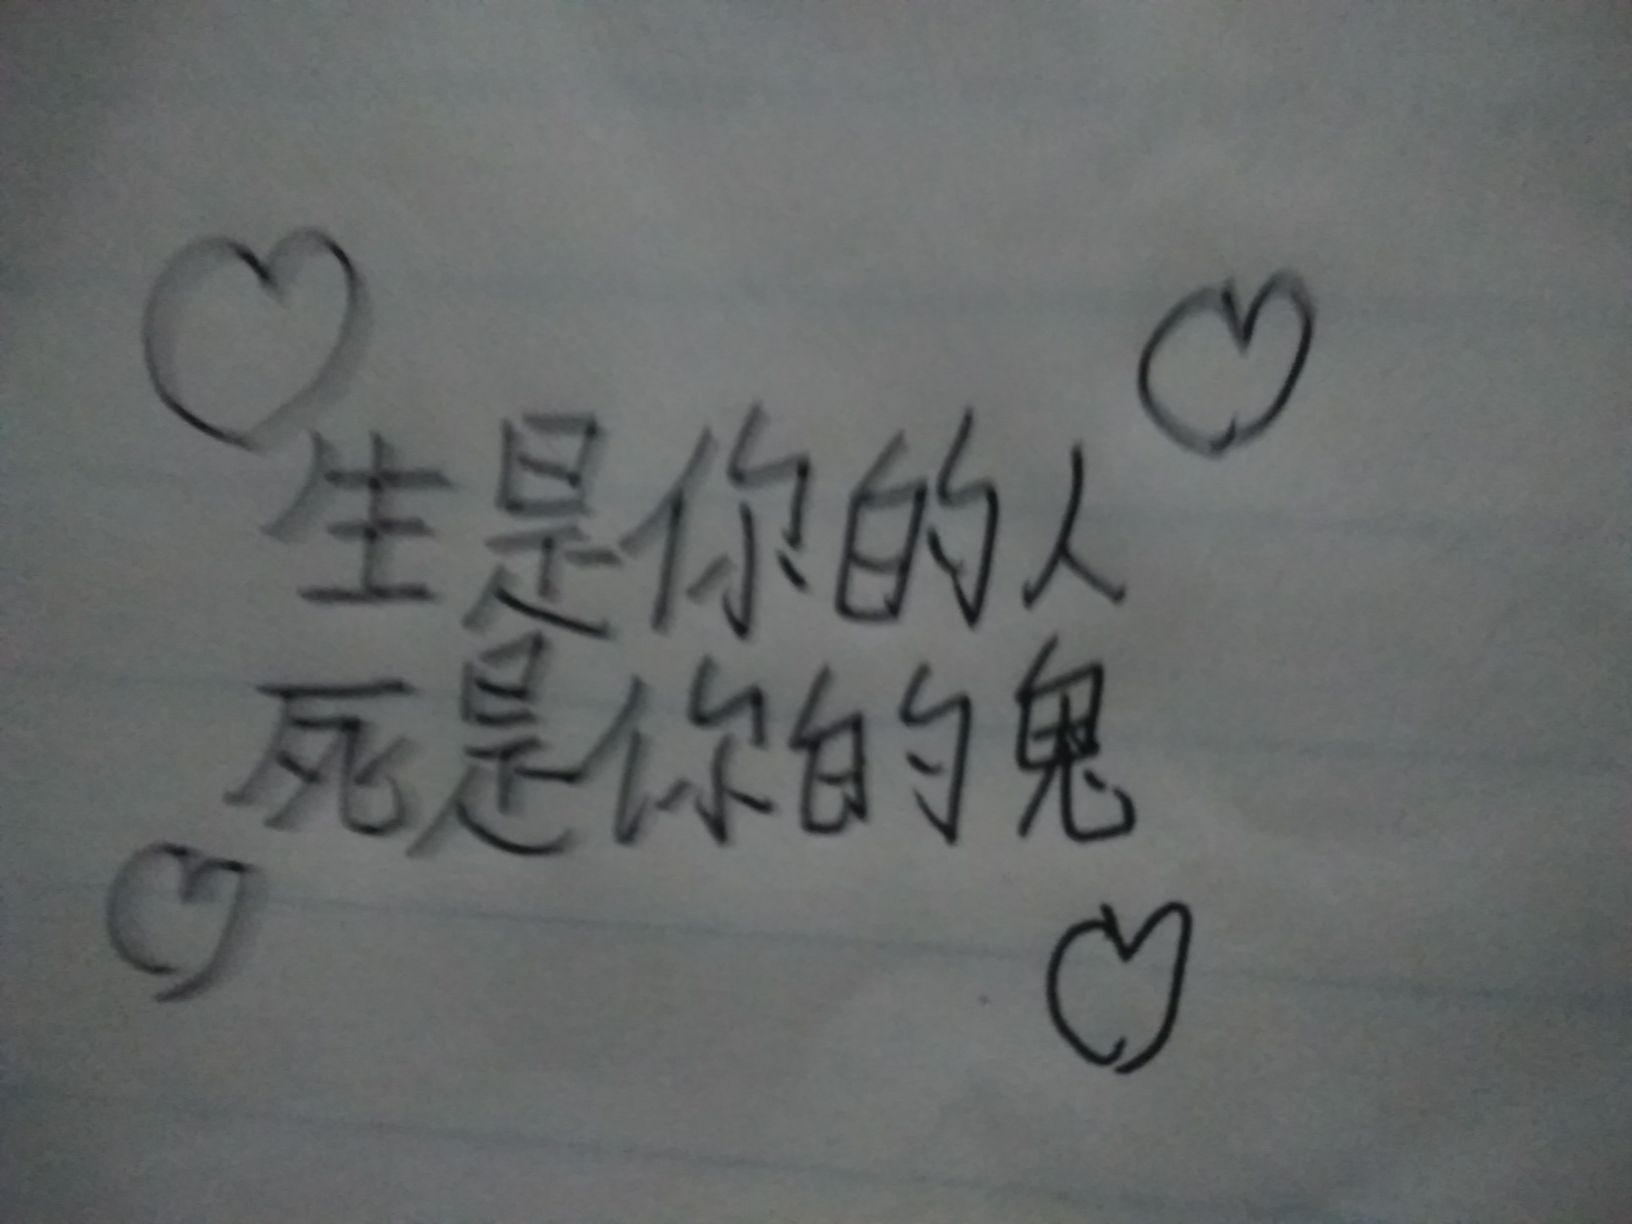 生是你的人
死是你的鬼